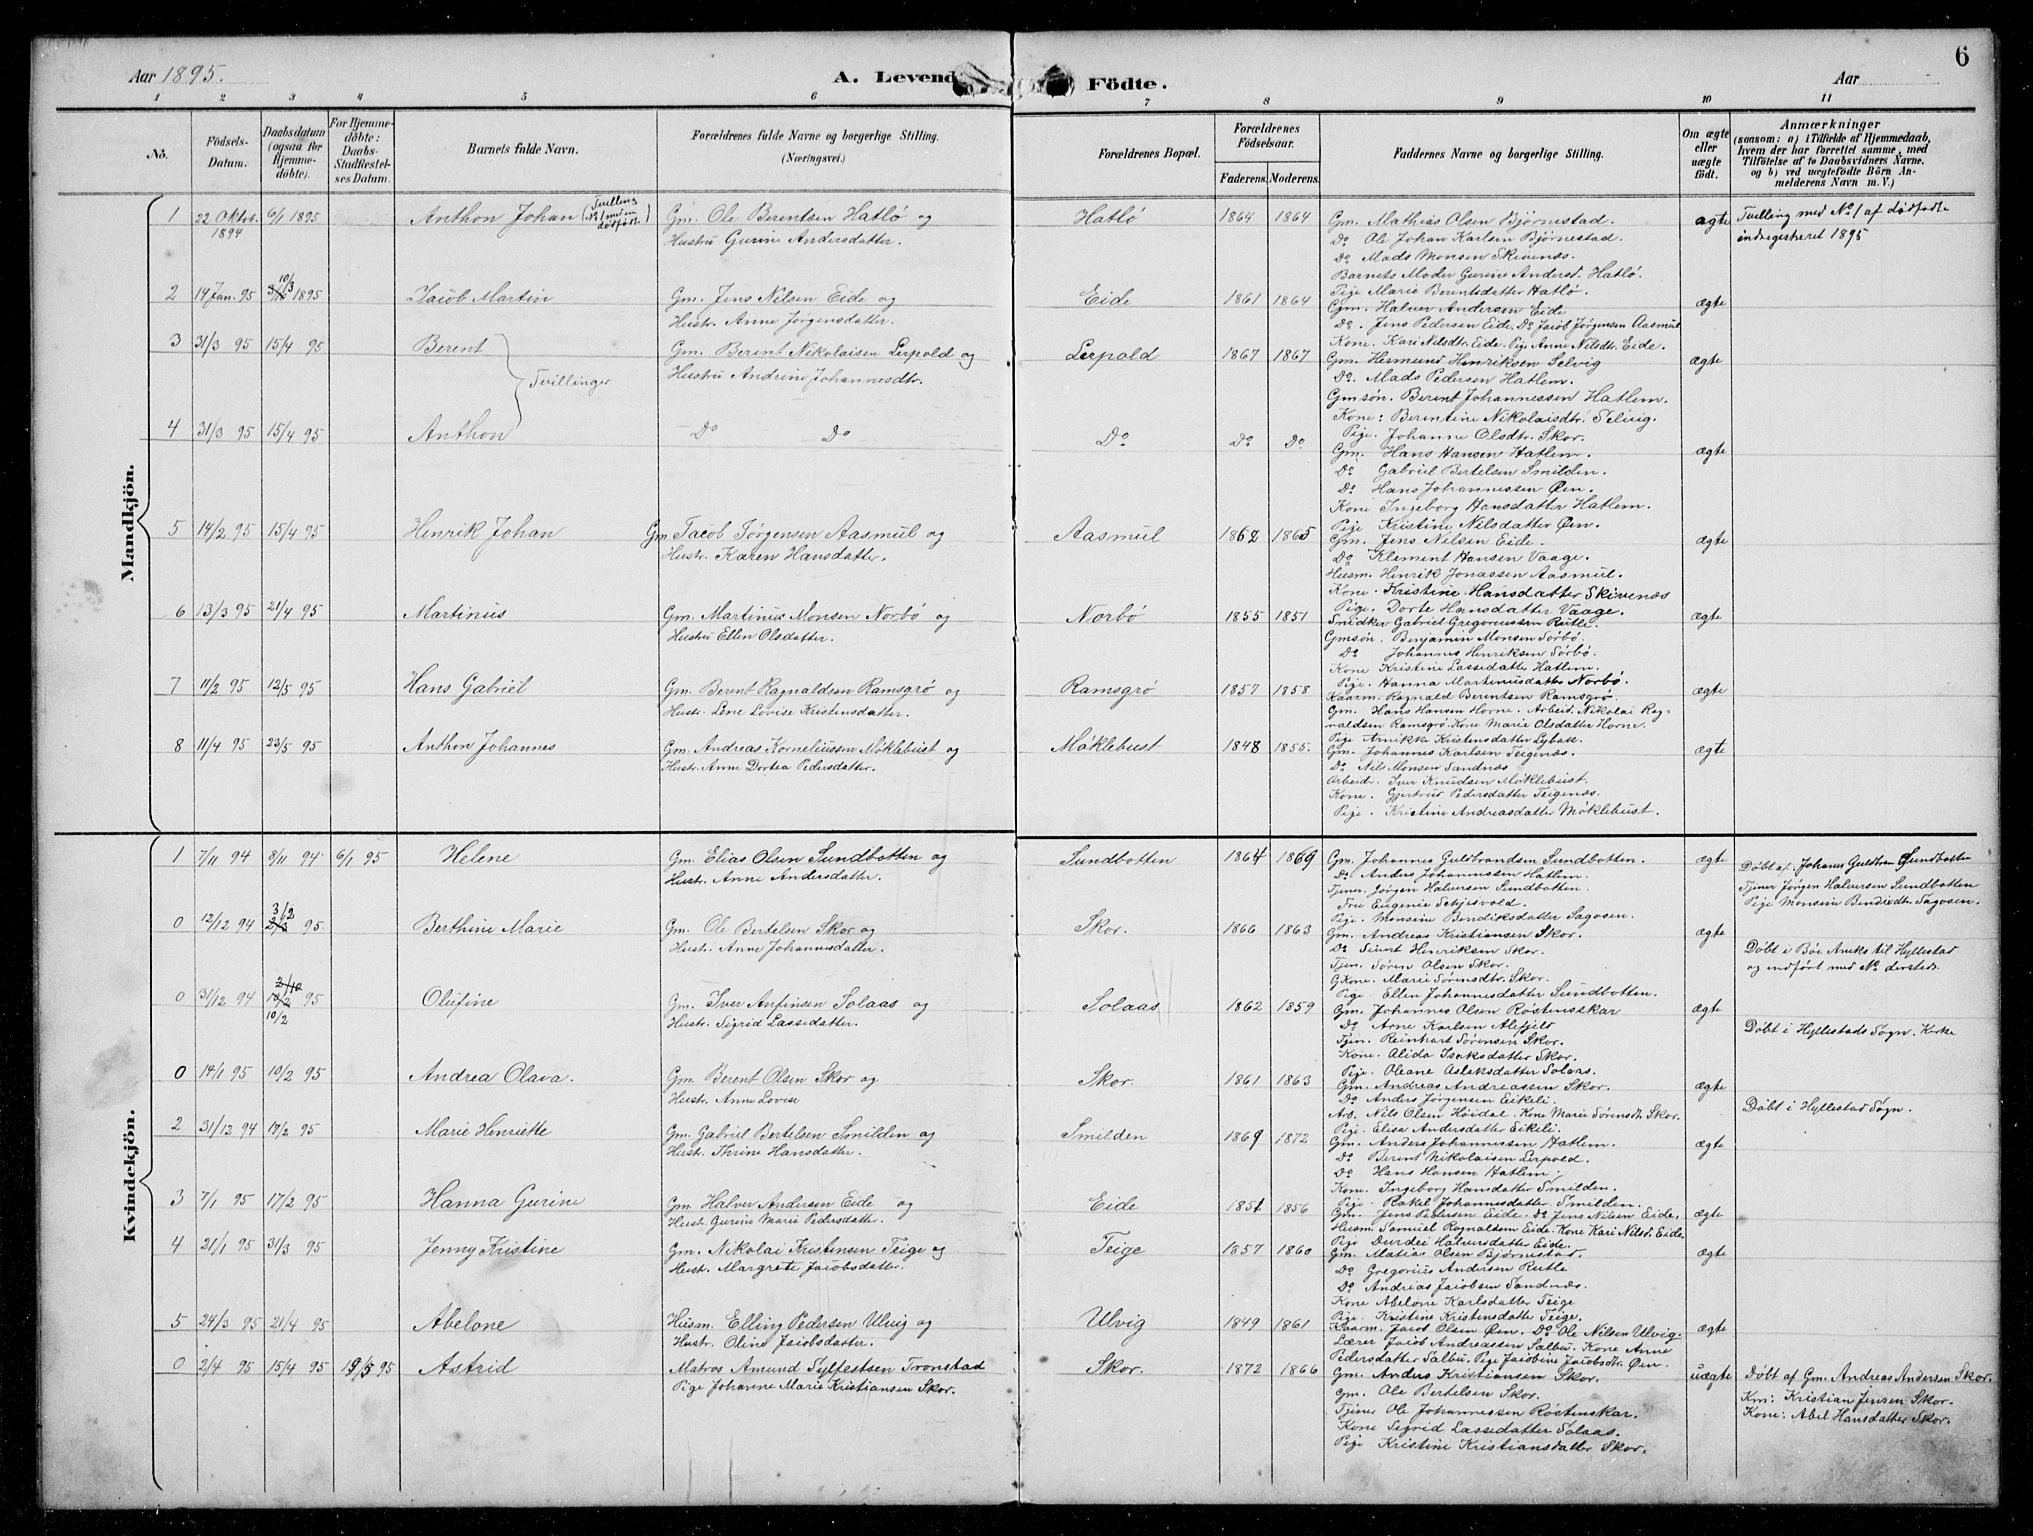 6
Aar 1895.
A. Levend
Födte.
Aar
1 2 3 4 5 6 7 8 9 10 11
No.
Födsels-Datum.
Daabsdatum (ogsaa for Hjemme-döbte).
For Hjemme-döbte: Daabs-Stadfestel-ses Datum.
Barnets fulde Navn.
Forældrenes fulde Navne og borgerlige Stilling. (Næringsvei.)
Forældrenes Bopæl.
Forældrenes Födselsaar.
Faderens. Moderens.
Faddernes Navne og borgerlige Stilling.
Om ægte eller uægte født.
Anmærkninger
(saasom: a) i Tilfælde af Hjemmedaab, hvem der har forrettet samme, med Tilföielse af to Daabsvidners Navne. og b) ved uægtefödte Börn An-melderens Navn m. V.)
Mandkjön.
1 22 Oktbr. 1894 6/1 1895 Anthon Johan (Tvilling No 1 med en dødfødt) Gm. Ole Berentsen Hatlö og
Hustru Gurine Andersdatter.
Hatlö 1864 1864 Gm. Mathias Olsen Bjørnestad.
Do Ole Johan Karlsen Bjørnestad.
Do Mads Monsen Skivenæs.
Barnets Moder Gurine Andersd. Hatlö.
Pige Marie Berentsdatter Hatlö.
ægte Tvilling med No 1 af dødfødte
indregistreret 1895
2 14 Jan. 95 10/3 1895 Jacob Martin Gm. Jens Nilsen Eide og
Hustr. Anne Jørgensdatter.
Eide 1861 1864 Gm. Halver Andersen Eide
Do. Jens Pedersen Eide. Do Jacob Jørgensen Aasmul
Kone. Kari Nilsdtr. Eide. Pige Anne Nilsdtr. Eide.
ægte
3 31/3 95 15/4 95 Berent Gm. Berent Nikolaisen Lerpold og
Tvillinger Hustru Andrine Johannesdtr.
Lerpold 1867 1867 Gm. Hermund Henriksen Selvig
Do. Mads Pedersen Hatlem.
Gmsøn. Berent Johannessen Hatlem.
Kone: Berentine Nikolaisdtr. Selvig.
Pige. Johanne Olsdtr. Skor.
ægte
4 31/3 95 15/4 95 Anthon Do Do Do Do Do. Gm. Hans Hansen Hatlem.
Do Gabriel Bertelsen Smilden.
Do Hans Johannessen Øen.
Kone Ingeborg Hansdatter Hatlem.
Pige Kristine Nilsdatter Øen.
ægte
5 14/2 95 15/4 95 Henrik Johan Gm. Jacob Jørgensen Aasmul og
Hustr. Karen Hansdatter.
Aasmul 1862 1865 Gm. Jens Nilsen Eide.
Do Klement Hansen Vaage.
Husm. Henrik Jonassen Aasmul.
Kone. Kristine Hansdatter Skivenæs
Pige. Dorte Hansdatter Vaage.
ægte
6 13/3 95 21/4 95 Martinus Gm. Martinus Monsen Norbö og
Hustru Ellen Olsdatter.
Norbö 1855 1851 Snidker Gabriel Gregoriussen Rutle.
Gmsøn. Benjamin Monsen Sørbö.
Do Johannes Henriksen Sørbö.
Kone Kristine Lassedatter Hatlem.
Pige. Hanna Martinusdatter Norbö.
ægte
7 11/2 95 12/5 95 Hans Gabriel Gm. Berent Ragnaldsen Ramsgrö og
Hustr. Lene Lovise Kristensdatter.
Ramsgrö 1857 1858 Kaarm. Ragnald Berentsen Ramsgrö
Gm. Hans Hansen Horne. Arbeid. Nikolai Rag-
naldsen Ramsgrö. Kone Marie Olsdatter Horne.
Pige Arnikke Kristensdatter Lybæk.
ægte
8 11/4 95 23/5 95 Anthon Johannes Gm. Andreas Korneliussen Møklebust og
Hustr. Anne Dortea Pedersdatter.
Møklebust 1848 1855. Gm. Johannes Karlsen Teigenæs.
Do Nils Monsen Sandnæs
Arbeidr. Iver Knudsen Møklebust.
Kone. Gjertrud Pedersdatter Teigenæs.
Pige. Kristine Andreasdatter Møklebust.
ægte
Kvindekjön.
1 7/11 94 8/11 94 6/1 95 Helene Gm. Elias Olsen Sundbotten og
Hustr. Anne Andersdatter.
Sundbotten 1864 1869 Gm. Johannes Guldbrandsen Sundbotten.
Do. Anders Johannessen Hatlem.
Tjener. Jørgen Halversen Sundbotten.
Fru Eugenie Schjesvold.
Pige. Monsine Bendiksdatter Sagosen.
ægte Døbt af: Johanes Guldbran Sundbotten
Tjener Jørgen Halversen Sundbotten
Pige Monsine Bendikdtr Sagosen.
0 12/12 94 3/2 95. Berthine Marie Gm. Ole Bertelsen Skor og
Hustr. Anne Johannesdatter.
Skor. 1866 1863 Gm. Andreas Kristiansen Skor.
Do Sivert Henriksen Skor.
Tjen. Søren Olsen Skor.
GKone. Marie Sørensdtr. Skor.
Pige. Ellen Johannesdatter Sundbotten.
ægte Døbt i Bøe Aneks til Hyllestad
og indført med No dersteds.
0 31/12 94 2/10 10/2 95 10/2 Olufine Gm. Iver Anfinsen Solaas og
Hustr. Sigrid Lassedatter.
Solaas 1862 1859 Gm. Johannes Olsen Røstenskar
Do. Arne Karlsen Alefjeld
Tjen. Reinhart Sørensen Skor.
Kone. Alida Isaksdatter Skor.
Pige. Oleane Aslaksdatter Solaas.
ægte Døbt i Hyllestads Sogn. Kirke
0 14/1 95 10/2 95 Andrea Olava. Gm. Berent Olsen Skor og
Hustr. Anne Lovise
Skor. 1861 1863 Gm. Andreas Andreassen Skor.
Do Anders Jørgensen Eikeli.
Arb. Nils Olsen Høidal. Kone Marie Sørensdt. Skor.
Pige. Elisa Andersdatter Eikeli.
ægte Døbt i Hyllestad Sogn.
2 31/12 94 17/2 95 Marie Henriette Gm. Gabriel Bertelsen Smilden og
Hustr. Thrine Hansdatter.
Smilden 1869 1872 Gm. Anders Johannessen Hatlem.
Do Berent Nikolaisen Lerpold.
Do Hans Hansen Hatlem.
Kone. Ingeborg Hansdatter Smilden.
Pige. Rakel Johannesdatter Smilden.
ægte
3 7/1 95 17/2 95 Hanna Gurine Gm. Halver Andersen Eide og
Hustr. Gurine Marie Pedersdatter.
Eide 1851 1856 Gm. Jens Pedersen Eide. Do Jens Nilsen Eide.
Husm. Samuel Ragnaldsen Eide. Kone Kari Nilsd. Eide.
Pige Durdei Halversdatter Eide.
ægte
4 21/1 95 31/3 95 Jenny Kristine Gm. Nikolai Kristensen Teige og
Hustr. Margrete Jacobsdatter.
Teige 1857 1860 Gm. Matias Olsen Bjørnestad.
Do. Gregorius Andersen Rutle
Do. Andreas Jacobsen Sandnæs.
Kone Abelone Karlsdatter Teige
Pige. Kristine Kristensdatter Teige.
ægte
5 24/3 95 21/4 95 Abelone Husm. Elling Pedersen Ulvig og
Hustr. Oline Jacobsdatter.
Ulvig 1849 1861 Kaarm. Jacob Olsen Øen. Do Ole Nilsen Ulvig.
Lærer Jacob Andreassen Salbu. Kone Anne
Pedersdatter Salbu. Pige Jacobine Jacobsdtr. Øen.
ægte
0 2/4 95 15/4 95 19/5 95 Astrid Matros Amund Sylfestsen Tronstad
Pige Johanne Marie Kristiansen Skor.
Skor. 1872 1866 Gm. Anders Kristiansen Skor.
Gm. Ole Bertelsen Skor.
Tjener Ole Johannessen Røstenskar.
Kone Sigrid Lassedatter Solaas.
Pige Kristine Kristiansdatter Skor.
uægte Døbt af Gm. Andreas Andersen Skor.
Km: Kristian Jensen Skor.
Kone: Abel Hansdatter Skor.